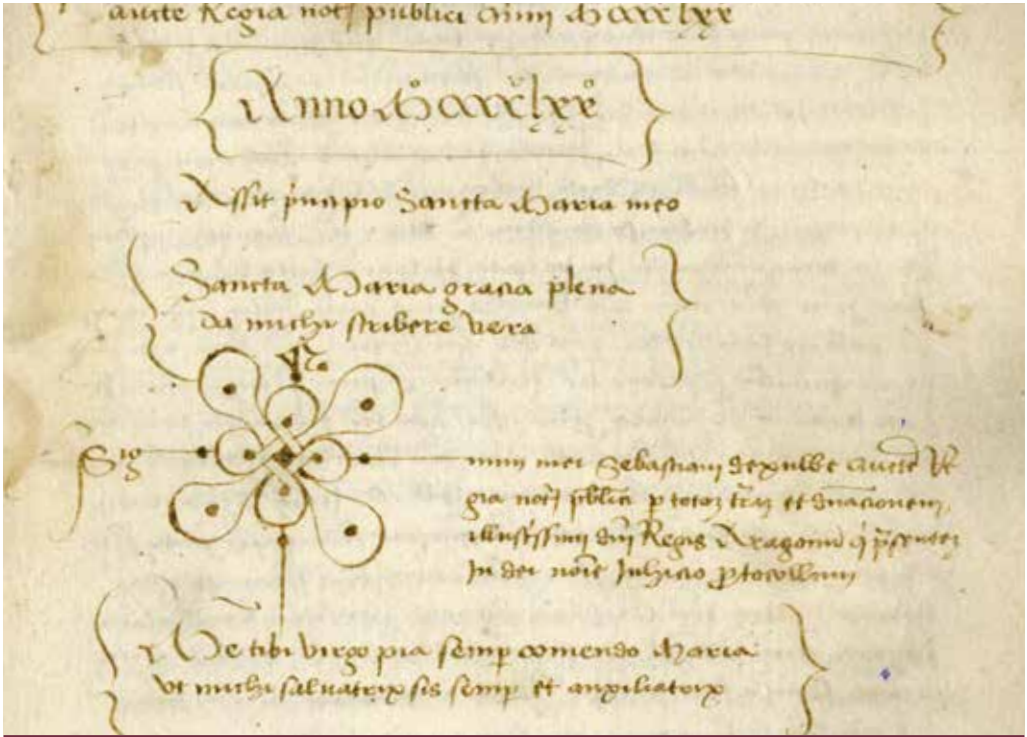 aucte Regia not publici Anni Mcccclxx
Anno Mcccclxx
Assit principio Sancta Maria meo
Sancta Maria gracia plena
da michi scribere vera
Sig
num mei Sebastiani aucte Re
gia not publici p totam tram et dnacionem
illustrissimi dni Regis Aragonum q presentem
In dei noie Inhicio ptocollum
Me tibi virgo pia semp comendo Maria
ut michi salvatrix sis semp et auxiliatrix